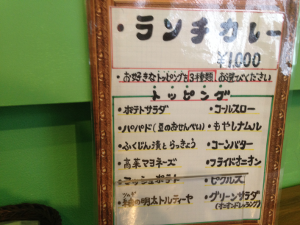 ・ランチカレー
¥1,000
・お好きなトッピングを3種類お選びください
トッピング
・ポテトサラダ
・コールスロー
・パパド(豆のおせんべい)
・もやしナムル
・ふくじん漬とらっきょう
・コーンバター
・高菜マヨネーズ
・フライドオニオン
・マッシュポテト
・ピクルス
・明太トルティーヤ
・グリーンサラダ